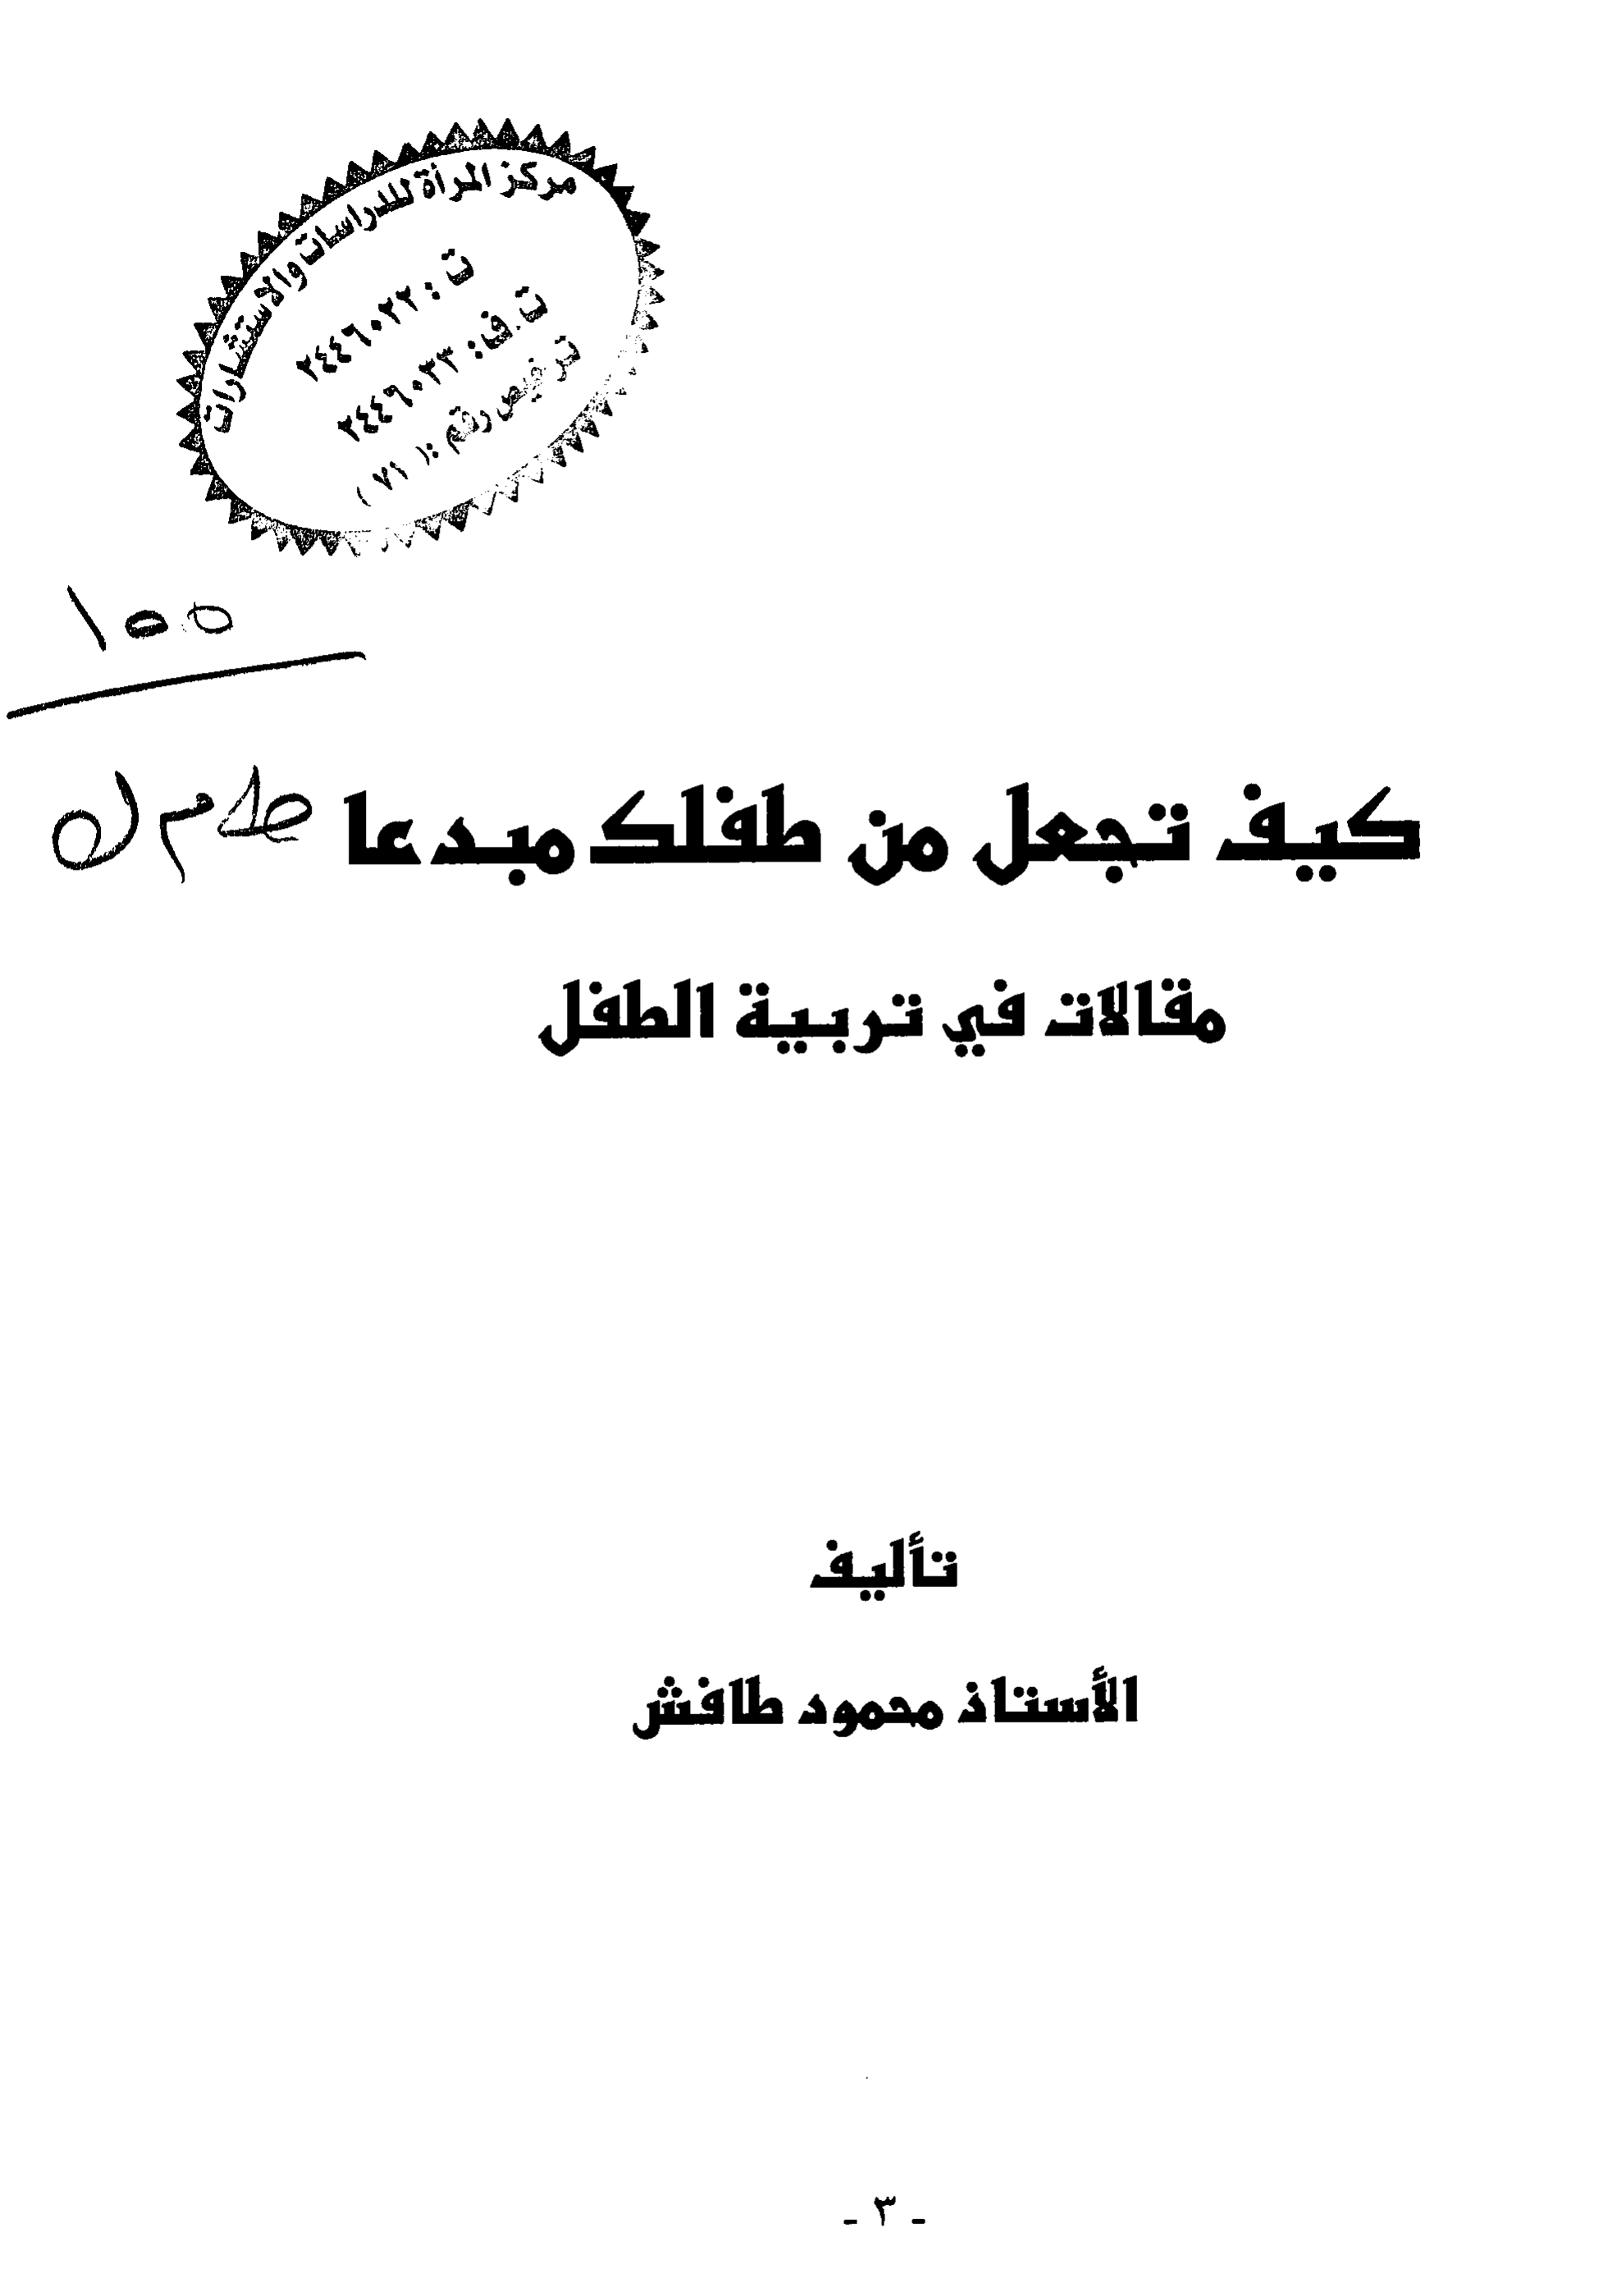 مركز المرأة للدراسات والاستشارات
ت : ٢٤٤٦٠٢٢
ت.ف: ٢٤٤٦٠٣٣
ترخيص رقم :( ٧١ )
١٥٥
كيف تجعل من طفلك مبدعا
مقالات في تربية الطفل
تأليف
الأستاذ محمود طافش
- ٣ -